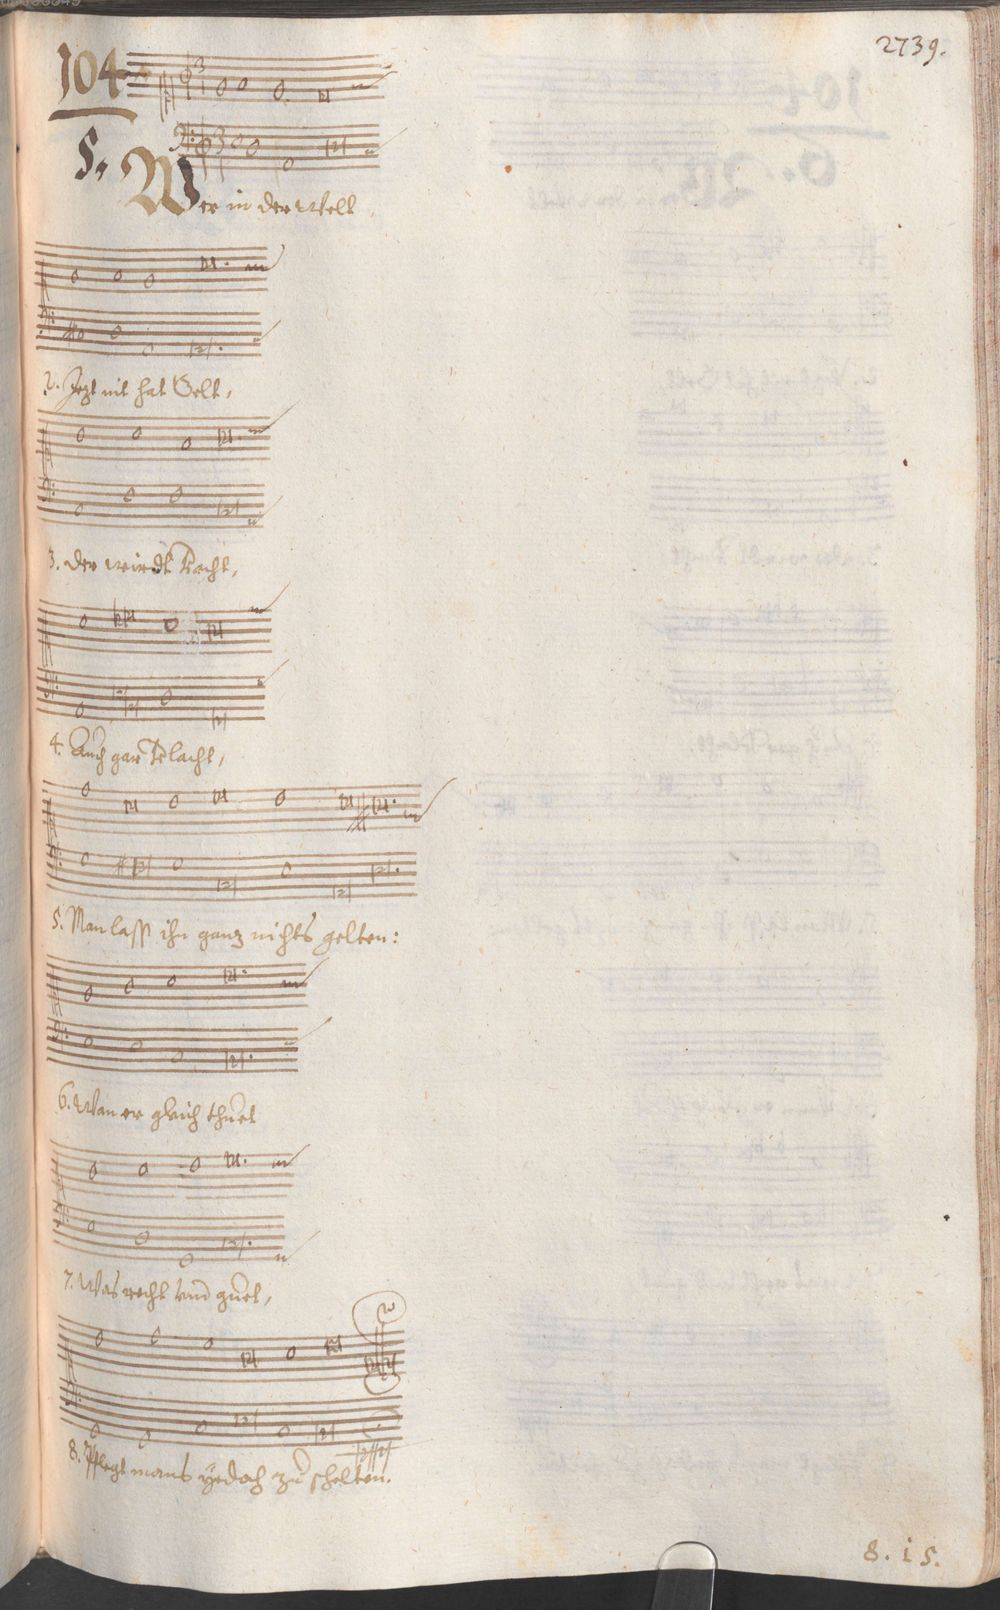 2739.
104
5. Wer in der Welt
2. Jezt nit hat Gelt,
3. der wirdt veracht,
4. Auch gar verlacht,
5. Man lasst ihn ganz nichts gelten:
6. Wan er gleich thuet
7. Was recht vnd guet,
8. Pflegt mans yedoch zu schelten.
8. i 5.